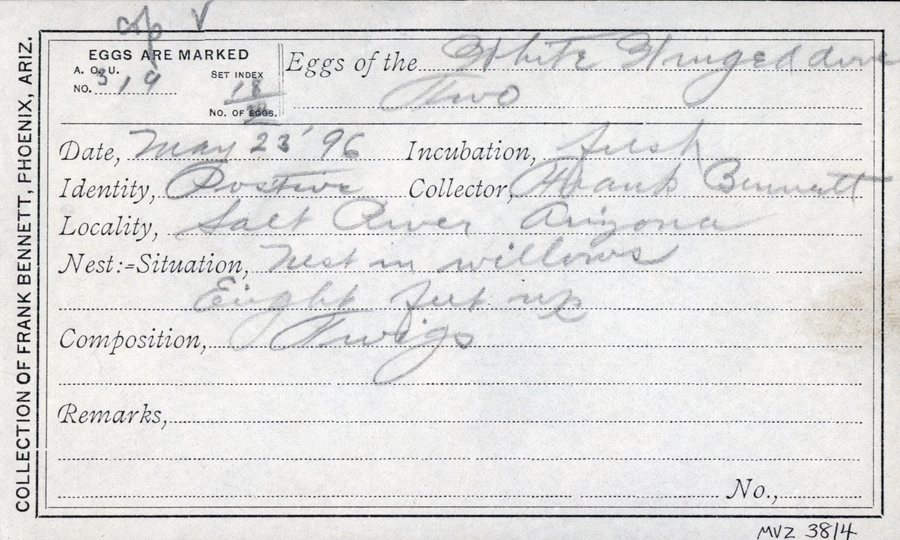 cop √
EGGS ARE MARKED
A. O. U.
NO. 319
SET INDEX
18
NO. OF EGGS.
Eggs of the White Winged dove
Two
Date, May 23' 96 Incubation, fresh
Identity, Postive Collector, Frank Bennett
Locality, Salt River Arizona
Nest:=Situation, Nest in willows
Eight feet up
Composition, Twigs
Remarks,
No.,
MVZ 3814
COLLECTION OF FRANK BENNETT, PHOENIX, ARIZ.